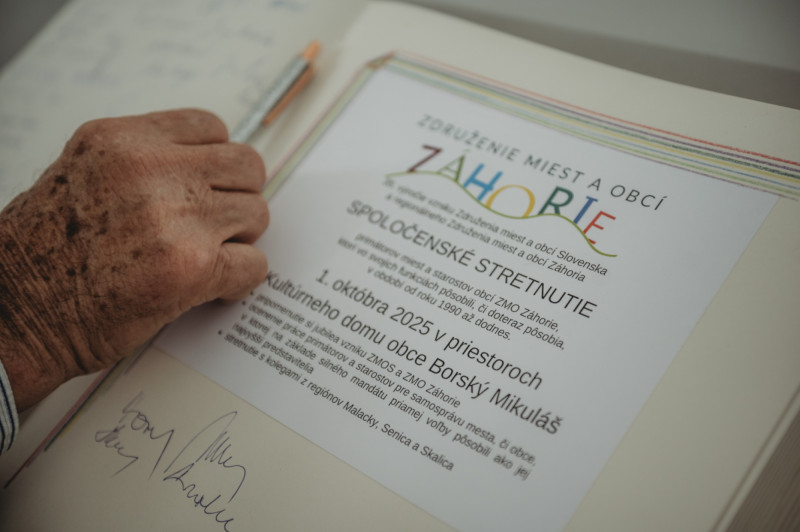 ZDRUŽENIE MIEST A OBCÍ
ZÁHORIE
výročie vzniku Združenia miest a obcí Slovenska
a regionálneho Združenia miest a obcí Záhoria
SPOLOČENSKÉ STRETNUTIE
primátorov miest a starostov obcí ZMO Záhorie,
ktorí vo svojich funkciách pôsobili, či doteraz pôsobia,
v období od roku 1990 až dodnes.
1. októbra 2025 v priestoroch
Kultúrneho domu obce Borský Mikuláš
pripomenutie si jubilea vzniku ZMOS a ZMO Záhorie
• ocenenie práce primátorov a starostov pre samosprávu mesta, či obce,
v ktorej na základe silného mandátu priamej voľby pôsobili ako jej
najvyšší predstavitelia
• stretnutie s kolegami z regiónov Malacky, Senica a Skalica